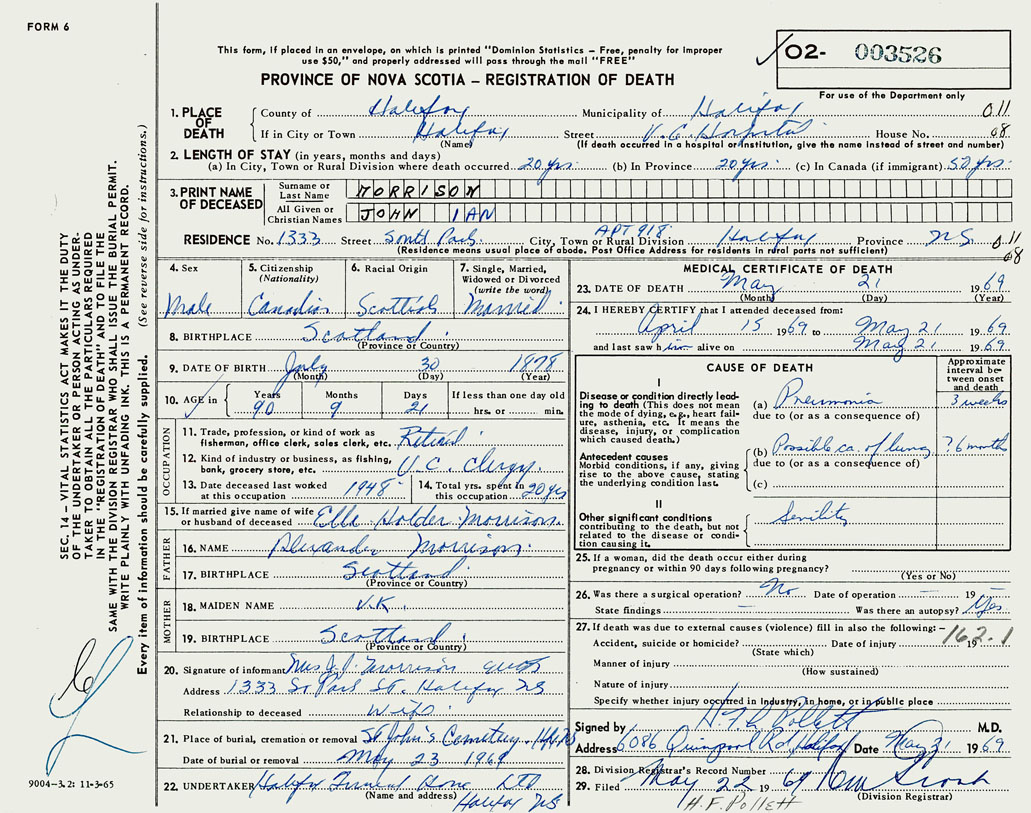 FORM 6
This form, if placed in an envelope, on which is printed "Dominion Statistics – Free, penalty for improper
use $50," and properly addressed will pass through the mail "FREE"
PROVINCE OF NOVA SCOTIA – REGISTRATION OF DEATH
O2- 003526
For use of the Department only
1. PLACE OF DEATH
County of Halifax Municipality of Halifax 011
If in City or Town Halifax Street V.G. Hospital House No. 08
(Name) (If death occurred in a hospital or institution, give the name instead of street and number)
2. LENGTH OF STAY (in years, months and days)
(a) In City, Town or Rural Division where death occurred 20 yrs. (b) In Province 20 yrs. (c) In Canada (if immigrant) 50 yrs.
3. PRINT NAME OF DECEASED
Surname or Last Name MORRISON
All Given or Christian Names JOHN IAN
APT 918
RESIDENCE No. 1333 Street South Park City, Town or Rural Division Halifax Province N.S. 011
(Residence means usual place of abode. Post Office Address for residents in rural parts not sufficient) 08
4. Sex Male
5. Citizenship (Nationality) Canadian
6. Racial Origin Scottish
7. Single, Married, Widowed or Divorced (write the word) Married
8. BIRTHPLACE Scotland
(Province or Country)
9. DATE OF BIRTH July 30 1878
(Month) (Day) (Year)
10. AGE in Years 90 Months 9 Days 21 If less than one day old hrs. or min.
OCCUPATION
11. Trade, profession, or kind of work as
fisherman, office clerk, sales clerk, etc. Retired
12. Kind of industry or business, as fishing,
bank, grocery store, etc. U.C. Clergy
13. Date deceased last worked at this occupation 1948
14. Total yrs. spent in this occupation 20 yrs
15. If married give name of wife
or husband of deceased Ella Holder Morrison
FATHER
16. NAME Alexander Morrison
17. BIRTHPLACE Scotland
(Province or Country)
MOTHER
18. MAIDEN NAME U.K.
19. BIRTHPLACE Scotland
(Province or Country)
20. Signature of informant Mrs J.I. Morrison
Address 1333 So. Park St. Halifax NS
Relationship to deceased Wife
21. Place of burial, cremation or removal St John's Cemetery, Hfx NS
Date of burial or removal May 23 1969
22. UNDERTAKER Halifax Funeral Home LTD
(Name and address) Halifax NS
MEDICAL CERTIFICATE OF DEATH
23. DATE OF DEATH May 21 1969
(Month) (Day) (Year)
24. I HEREBY CERTIFY that I attended deceased from:
April 15 1969 to May 21 1969
and last saw him alive on May 21 1969
CAUSE OF DEATH
Approximate interval between onset and death
I
Disease or condition directly leading to death (This does not
mean the mode of dying, e.g., heart failure, asthenia, etc. It means the
disease, injury, or complication which caused death.)
(a) Pneumonia 3 weeks
due to (or as a consequence of)
Antecedent causes
Morbid conditions, if any, giving
rise to the above cause, stating
the underlying condition last.
(b) Possible ca. of lung ? 6 months
due to (or as a consequence of)
(c)
II
Other significant conditions
contributing to the death, but not
related to the disease or condition causing it.
Senility
25. If a woman, did the death occur either during
pregnancy or within 90 days following pregnancy?
(Yes or No)
26. Was there a surgical operation? No Date of operation — 19 —
State findings — Was there an autopsy? Yes
27. If death was due to external causes (violence) fill in also the following: – 162.1
Accident, suicide or homicide? Date of injury 19
(State which)
Manner of injury
(How sustained)
Nature of injury
Specify whether injury occurred in Industry, in home, or in public place
Signed by H.F. Pollett M.D.
Address 6086 Quinpool Rd, Halifax Date May 21 1969
28. Division Registrar's Record Number
29. Filed May 22 1969
(Division Registrar)
H.F. POLLETT
SEC. 14 – VITAL STATISTICS ACT MAKES IT THE DUTY
OF THE UNDERTAKER OR PERSON ACTING AS UNDER-
TAKER TO OBTAIN ALL THE PARTICULARS REQUIRED
IN THE "REGISTRATION OF DEATH" AND TO FILE THE
SAME WITH THE DIVISION REGISTRAR WHO SHALL ISSUE THE BURIAL PERMIT.
WRITE PLAINLY WITH UNFADING INK. THIS IS A PERMANENT RECORD.
Every item of information should be carefully supplied. (See reverse side for instructions.)
9004-3.2: 11-3-65